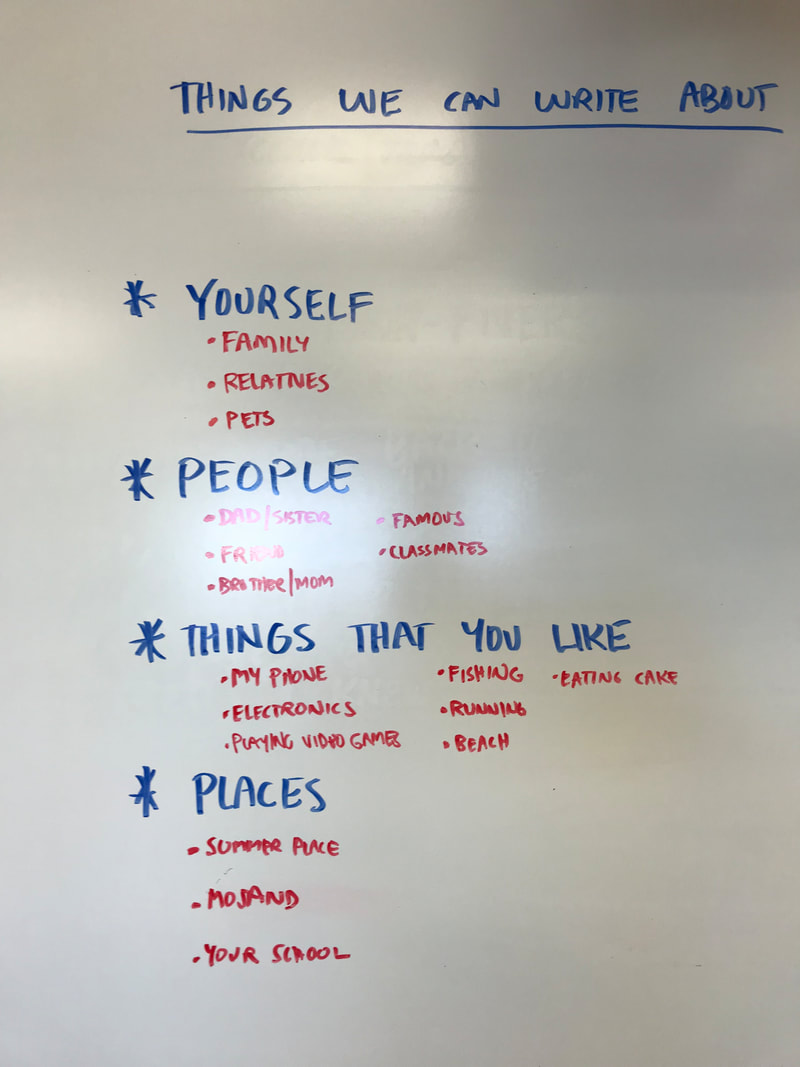 THINGS WE CAN WRITE ABOUT
* YOURSELF
• FAMILY
• RELATIVES
• PETS
* PEOPLE
• DAD/SISTER • FAMOUS
• FRIEND • CLASSMATES
• BROTHER/MOM
* THINGS THAT YOU LIKE
• MY PHONE • FISHING • EATING CAKE
• ELECTRONICS • RUNNING
• PLAYING VIDEO GAMES • BEACH
* PLACES
• SUMMER PLACE
• MOJAND
• YOUR SCHOOL